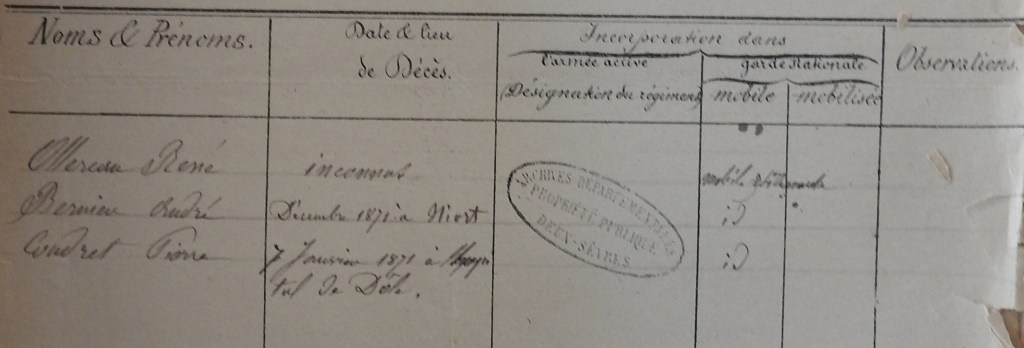 Noms & Prénoms.
Date & lieu
de Décès.
Incorporation dans
l'armée active
garde Nationale
(Désignation du régiment)
mobile
mobilisée
Observations.
René
inconnus
mobile
Bernieu André
Décembre 1871 à Niort
id
Coudret Pierre
7 Janvier 1871 à
tal de Dôle.
id
ARCHIVES DÉPARTEMENTALES
PROPRIÉTÉ PUBLIQUE
DEUX-SÈVRES